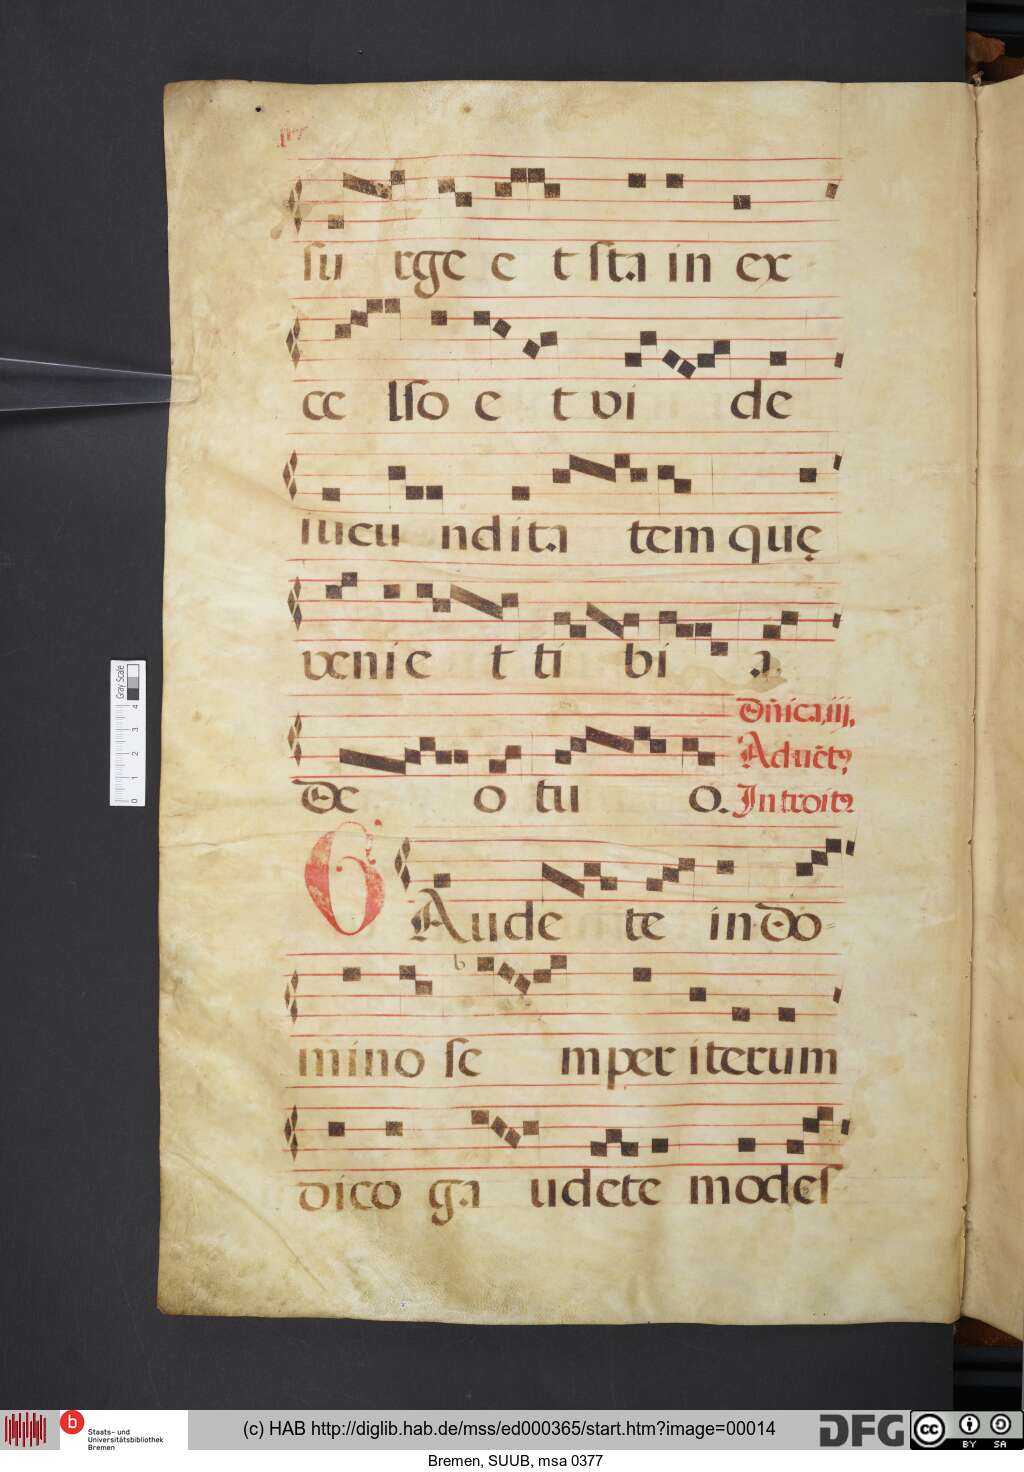 su rge e t sta in ex
ce lso e t vi de
iucu ndita tem quę
venie t ti bi a
Dn̄ica,iij,
Aduēt9
De o tu o.
Introit9
GAude te in do=
b
mino se mper iterum
dico ga udete modes
Gray Scale
4
3
2
1
0
Staats- und
Universitätsbibliothek
Bremen
(c) HAB http://diglib.hab.de/mss/ed000365/start.htm?image=00014
DFG
cc BY SA
Bremen, SUUB, msa 0377